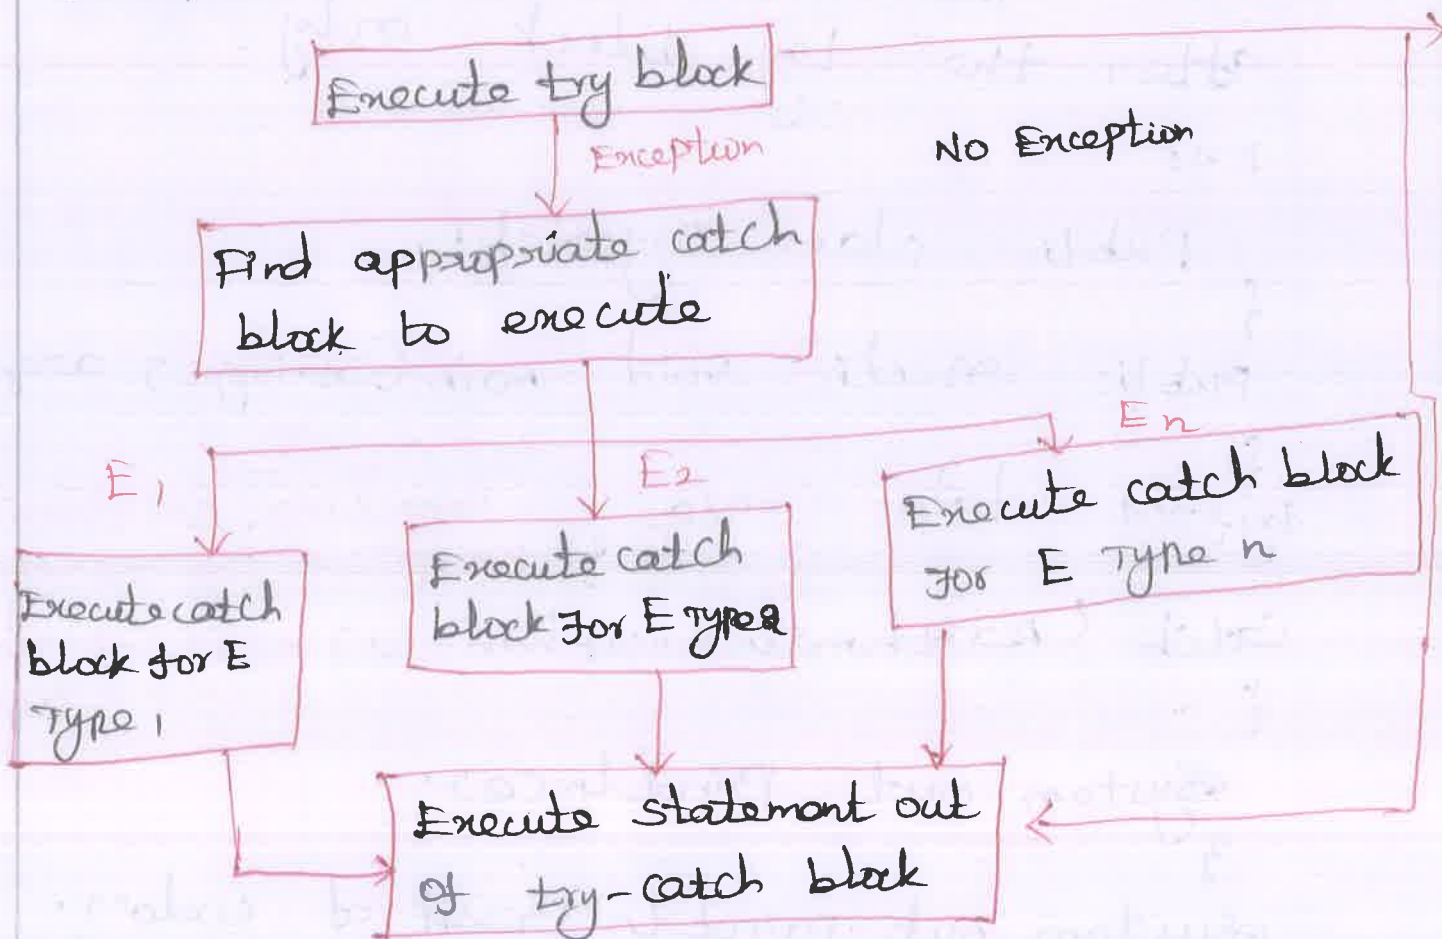 Execute try block
Exception
No Exception
Find appropriate catch
block to execute
E1
E2
En
Execute catch
block for E
Type 1
Execute catch
block for E Type 2
Execute catch block
for E Type n
Execute statement out
of try-catch block